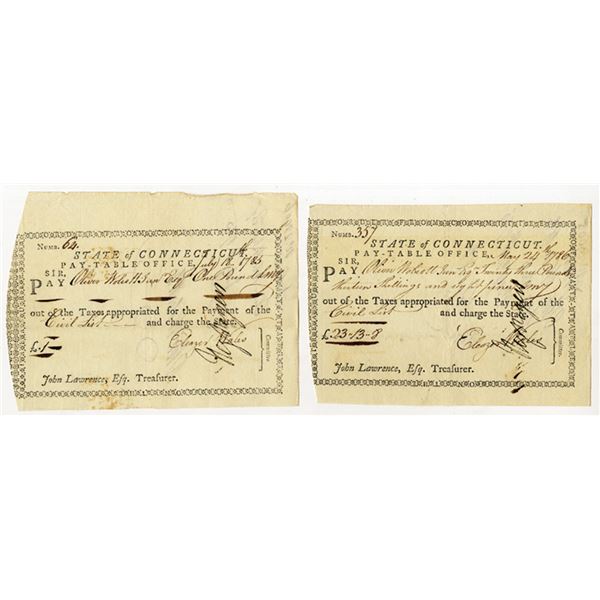 Numb. 64.
STATE of CONNECTICUT.
PAY-TABLE OFFICE, July 18th 1785
SIR,
PAY Oliver Wolcott Junr Esqr One Pound Lmy
out of the Taxes appropriated for the Payment of the
Civil List and charge the State.
£1
Eleazer Wales
Committee
John Lawrence, Esq. Treasurer.
Numb. 357
STATE of CONNECTICUT.
PAY-TABLE OFFICE, May 24th 1786
SIR,
PAY Oliver Wolcott Junr Esqr Twenty three Pounds
thirteen Shillings and eight pence Lmy
out of the Taxes appropriated for the Payment of the
Civil List and charge the State.
£23-13-8
Eleazr Wales
Committee
John Lawrence, Esq. Treasurer.